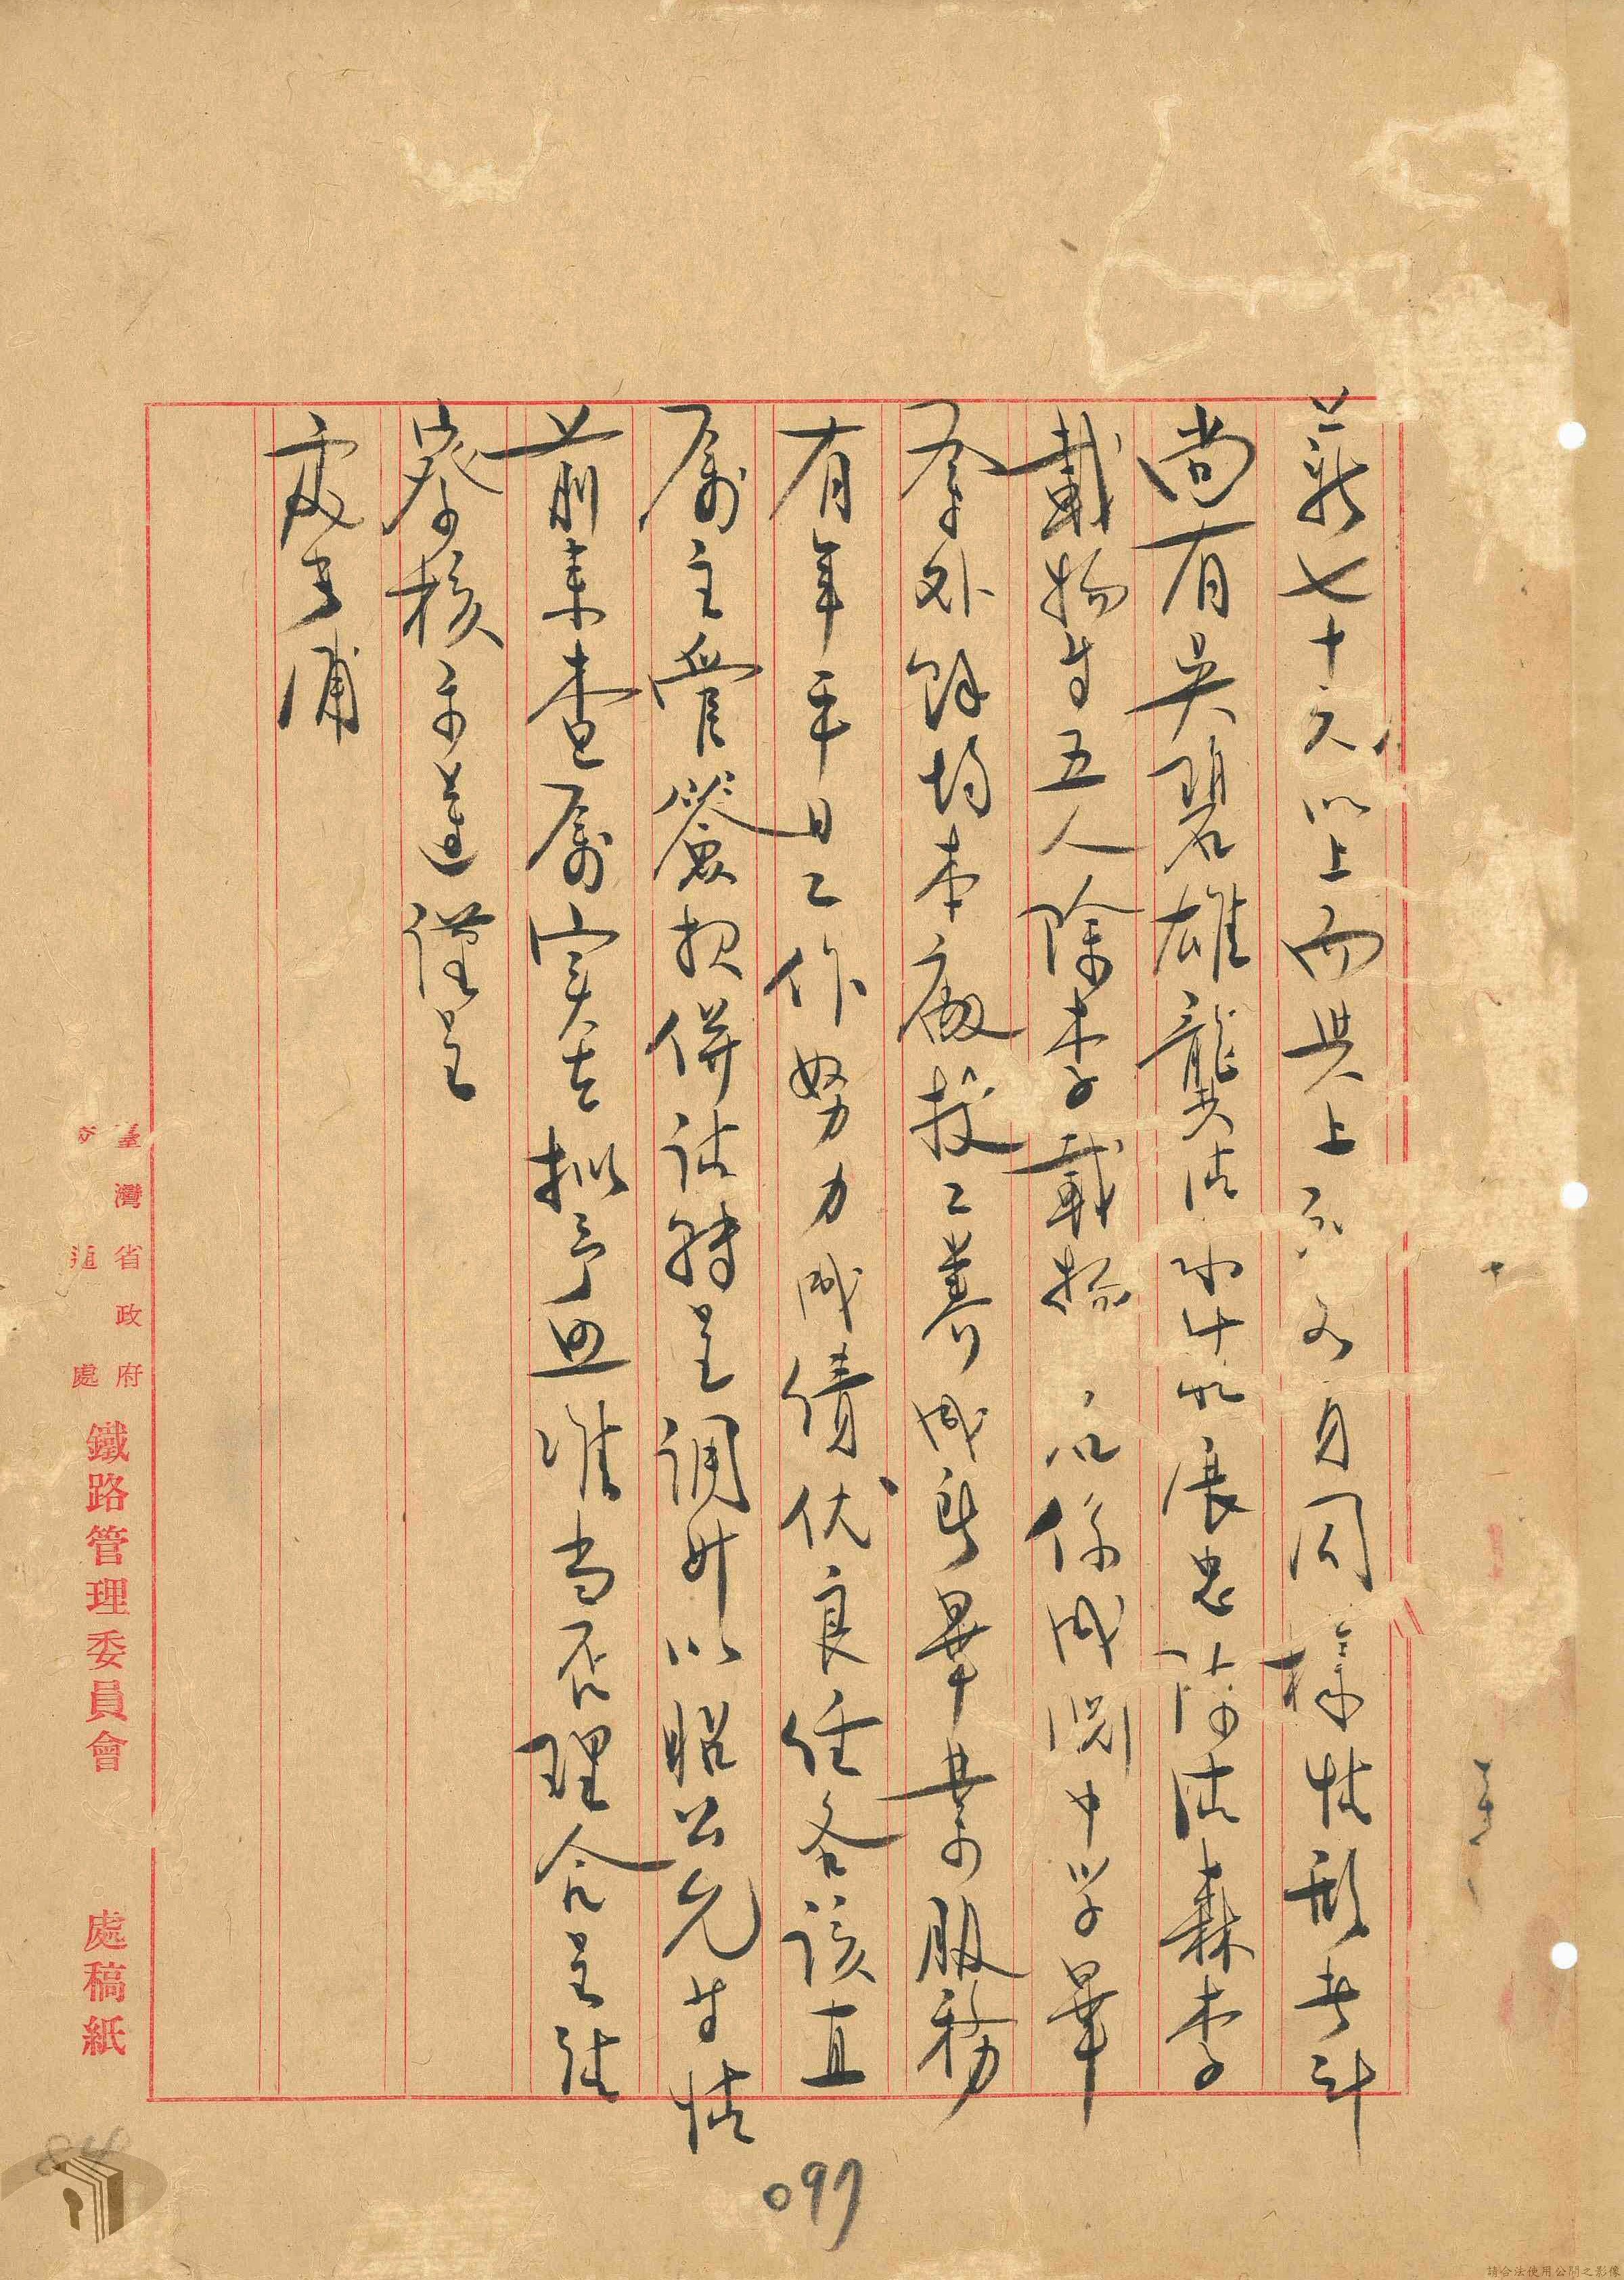 薪七十元以上而與上 各員同樣情形者計
尚有吳碧雄龔 展忠 森李
載 等五人除李載 係 中學畢
業外餘均本廠技工養成所畢業而服務
有年平日工作努力成績优良任各該直
屬主管簽報併請轉呈調升以昭公允等情
前來查屬實在擬予照准當否理合呈請
察核示遵謹呈
處長浦
臺灣省政府
交通處
鐵路管理委員會 處稿紙
097
請合法使用公開之影像